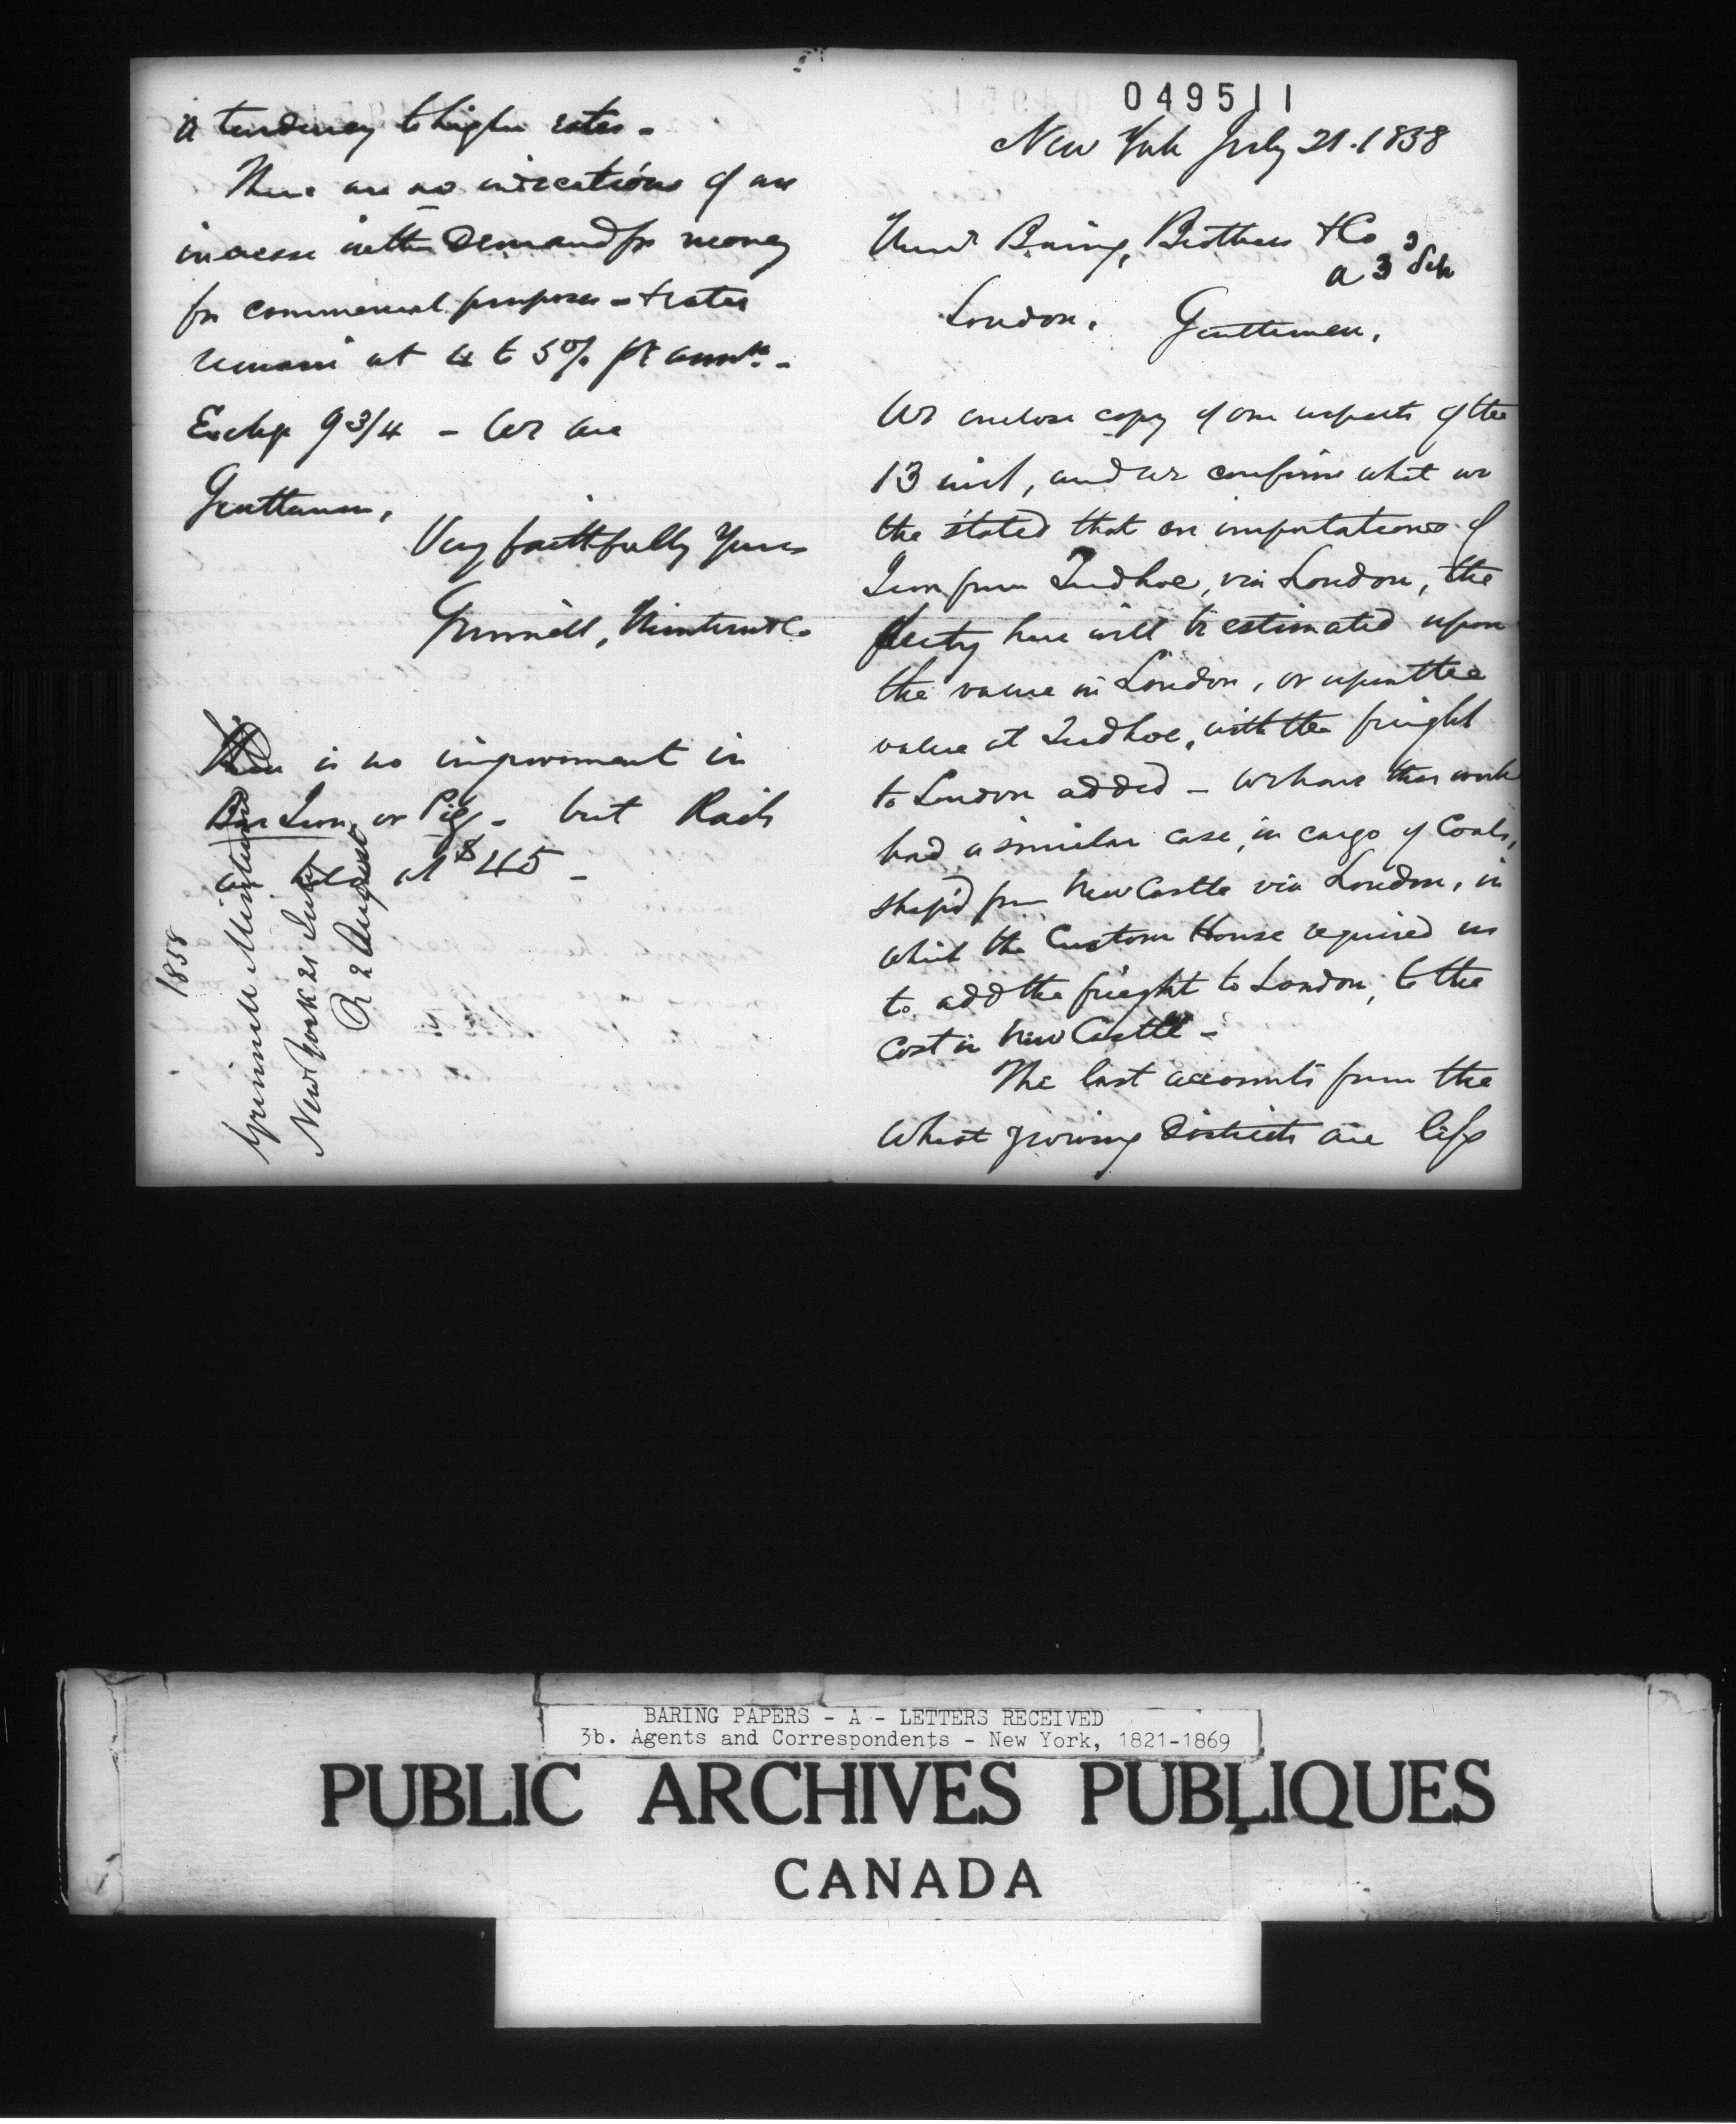 049511
New York July 21. 1858
Messrs Baring, Brothers & Co
a 3
London. Gentlemen,
We enclose copy of our respects of the
13 inst, and we confirm what we
the stated that on importations of
Iron from Tudhoe, via London, the
duty here will be estimated upon
the value in London, or upon the
value at Tudhoe, with the freight
to London added – We have this week
had a similar case, in cargo of Coals,
ship'd from New Castle via London, in
which the Custom House required us
to add the freight to London, to the
cost in New Castle –
The last accounts from the
Wheat growing districts are less
a tendency to higher rates –
There are no indications of an
increase in the demand for money
for commercial purposes – & rates
remain at 4 to 5% pr annm. –
Exchge 9 3/4 – We are
Gentlemen,
Very faithfully Yours
Grinnell, Minturn & Co
There is no improvement in
Bar Iron, or Pig – but Rails
are held at $45 –
1858
Grinnell Minturn & Co
New York 21 July
R 2 August
BARING PAPERS - A - LETTERS RECEIVED
3b. Agents and Correspondents - New York, 1821-1869
PUBLIC ARCHIVES PUBLIQUES
CANADA